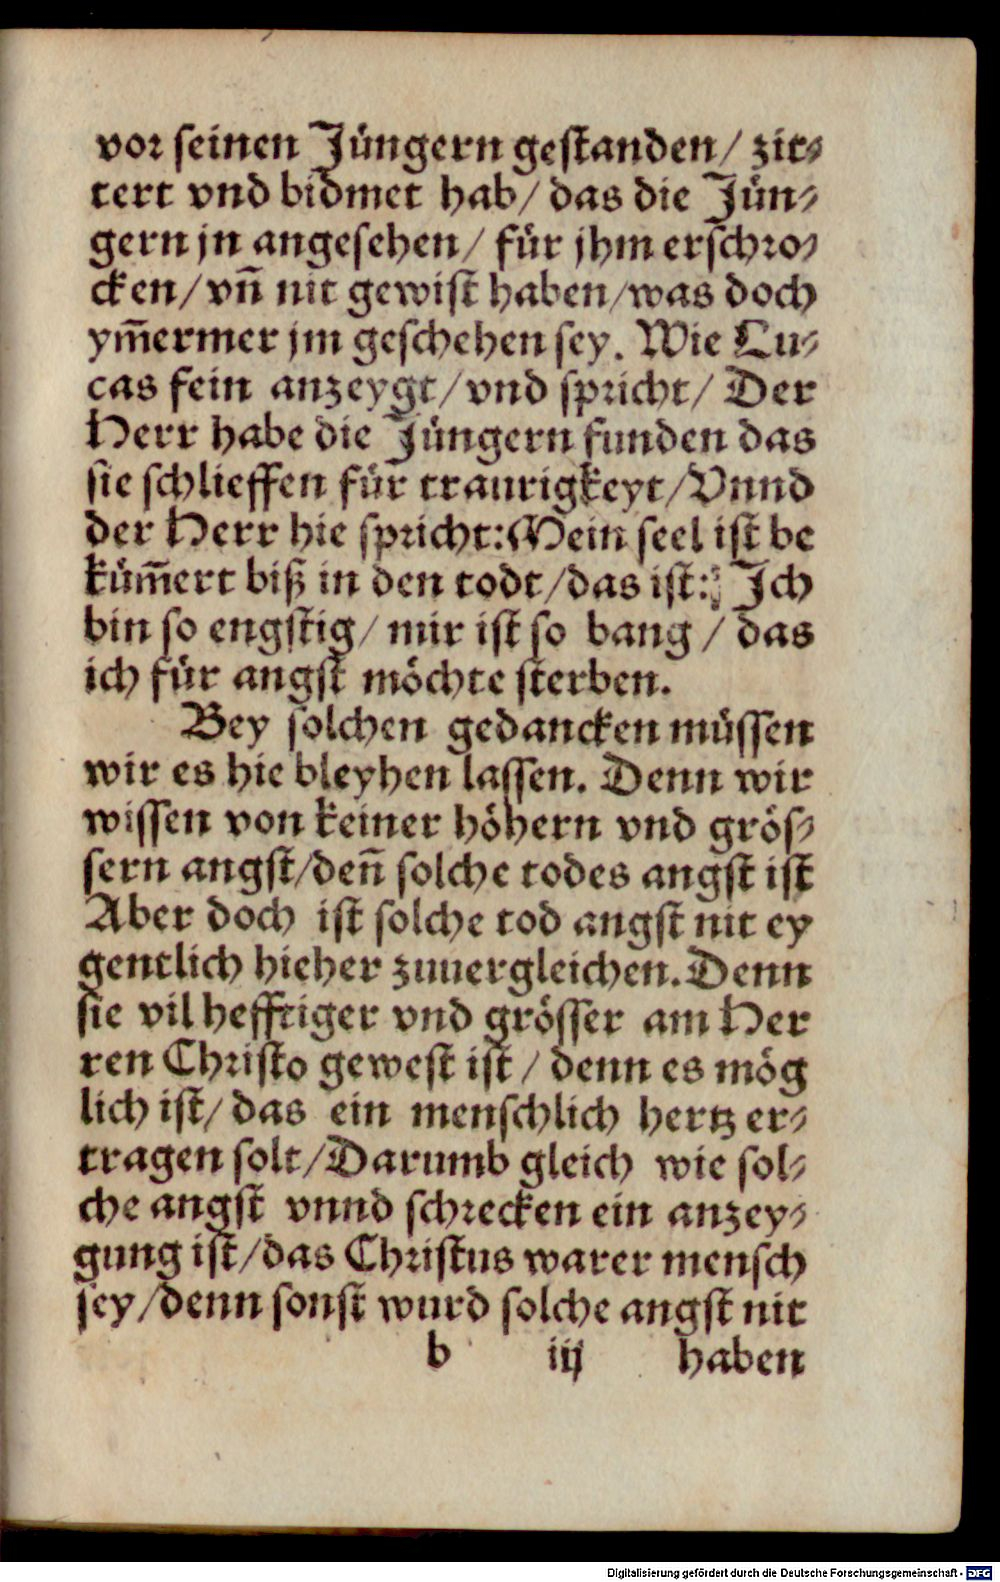 vor seinen Jüngern gestanden/ zit⸗
tert vnd bidmet hab/ das die Jün⸗
gern jn angesehen/ für jhm erschro⸗
cken/ vñ nit gewist haben/was doch
ym̃ermer jm geschehen sey. Wie Lu⸗
cas fein anzeygt/vnd spricht/ Der
Herr habe die Jüngern funden das
sie schlieffen für traurigkeyt/Vnnd
der Herr hie spricht:Mein seel ist be
küm̃ert biß in den todt/das ist: Ich
bin so engstig/ mir ist so bang / das
ich für angst möchte sterben.
Bey solchen gedancken müssen
wir es hie bleyhen lassen. Denn wir
wissen von keiner höhern vnd grös⸗
sern angst/deñ solche todes angst ist
Aber doch ist solche tod angst nit ey
gentlich hieher zuuergleichen.Denn
sie vil hefftiger vnd grösser am Her
ren Christo gewest ist / denn es mög
lich ist/ das ein menschlich hertz er⸗
tragen solt/Darumb gleich wie sol⸗
che angst vnnd schrecken ein anzey⸗
gung ist/das Christus warer mensch
sey/denn sonst wurd solche angst nit
b iij haben
Digitalisierung gefördert durch die Deutsche Forschungsgemeinschaft - DFG